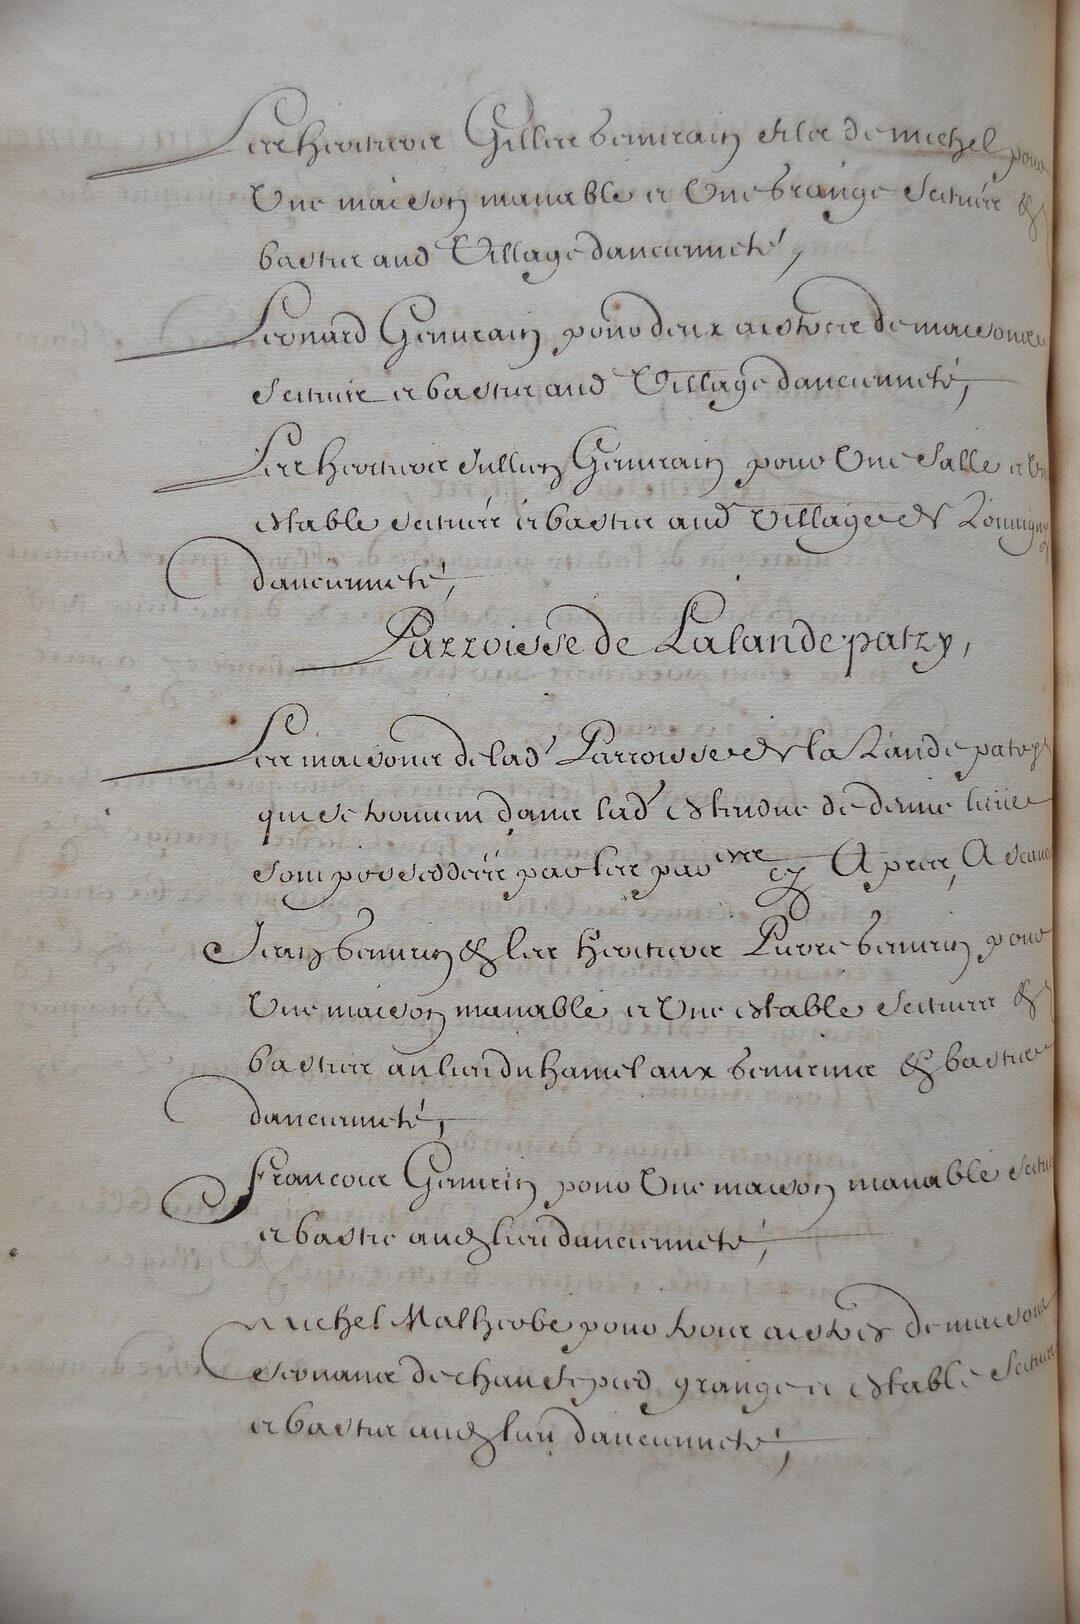 Les heritiers Gilles Gemrain filz de michel pour
Une maison manable et Une Grange scituées &
basties aud Village dancienneté,
Leonard Gemrain pour deux aistres de maisons
scituée et bastie aud Village dancienneté,
Les heritiers Jullien Gemrain pour Une Salle et Un
estable scituée et bastie aud Village de Lonvigny
dancienneté,
Parroisse de Lalandepatry,
Les maisons de lad Parroisse de la Lande patry
qui se trouvent dans lad estendue de demie lieüe
sont posseddéés par les par ers cy Apres, A scauoir
Jean Gemrin & les heritiers Pierre Gemrin pour
Une maison manable et Une estable scituées &
basties au lieu du hamel aux Gemrins & basties
dancienneté,
Francois Gemrin pour Une maison manable scituée
et bastie aud lieu dancienneté,
Michel Malherbe pour trois aistres de maisons
seruants de chaufepied grange et estable scituée
et bastie aud lieu dancienneté,